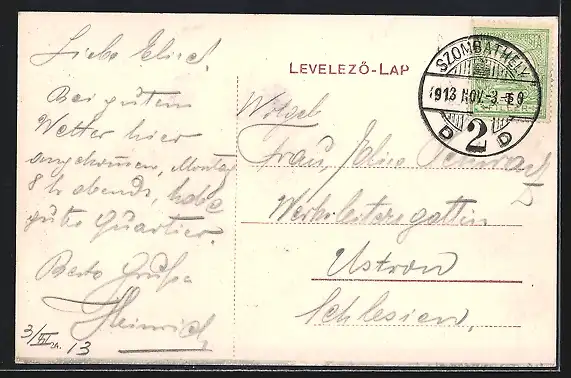 Liebe Elise!
Bei gutem
Wetter hier
angekommen, Montag
8 h abends, habe
gutes Quartier.
Beste Grüße
Heinrich
3/XI. 13
LEVELEZŐ-LAP
SZOMBATHELY
913 NOV.-3
D 2 D
Frau Elise
Werksleitersgattin
Ustron
Schlesien.